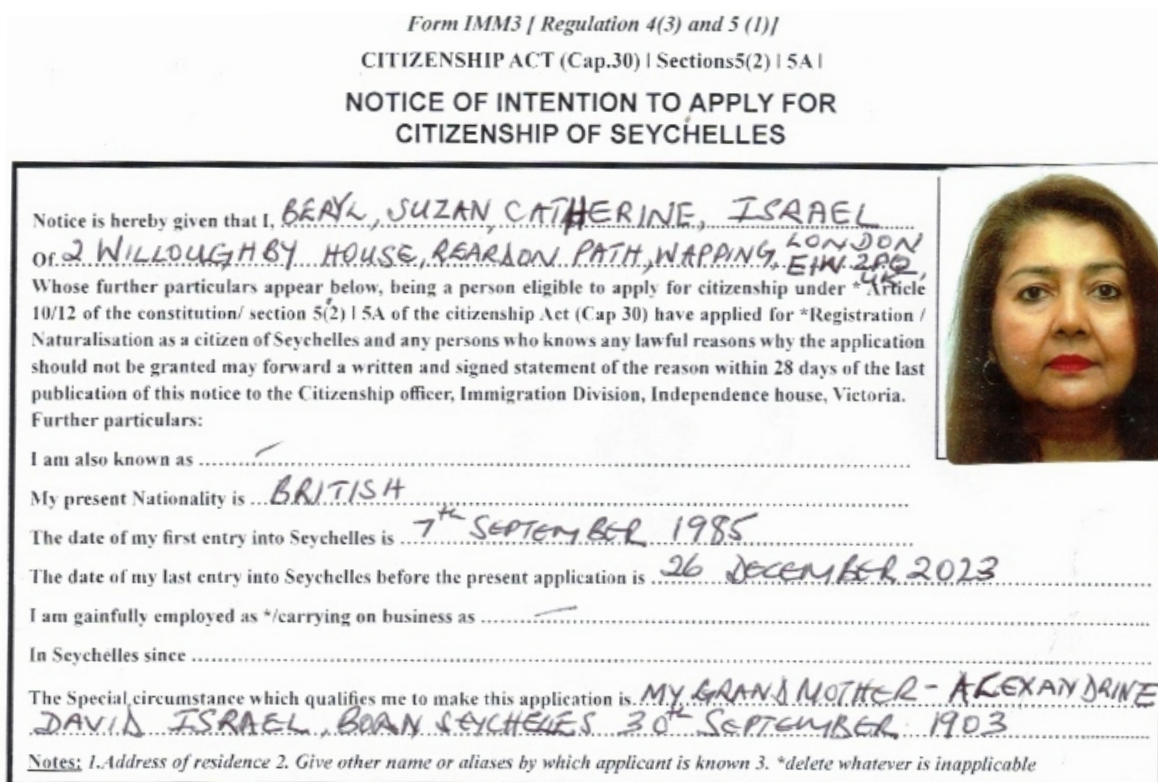 Form IMM3 [ Regulation 4(3) and 5 (1)]
CITIZENSHIP ACT (Cap.30) | Sections5(2) | 5A |
NOTICE OF INTENTION TO APPLY FOR
CITIZENSHIP OF SEYCHELLES
Notice is hereby given that I, BERYL, SUZAN, CATHERINE, ISRAEL
Of 2 WILLOUGHBY HOUSE, REARDON PATH, WAPPING, LONDON
E1W 2PQ, UK
Whose further particulars appear below, being a person eligible to apply for citizenship under * Article
10/12 of the constitution/ section 5(2) | 5A of the citizenship Act (Cap 30) have applied for *Registration /
Naturalisation as a citizen of Seychelles and any persons who knows any lawful reasons why the application
should not be granted may forward a written and signed statement of the reason within 28 days of the last
publication of this notice to the Citizenship officer, Immigration Division, Independence house, Victoria.
Further particulars:
I am also known as
My present Nationality is BRITISH
The date of my first entry into Seychelles is 7th SEPTEMBER 1985
The date of my last entry into Seychelles before the present application is 26 DECEMBER 2023
I am gainfully employed as */carrying on business as
In Seychelles since
The Special circumstance which qualifies me to make this application is MY GRANDMOTHER - ALEXANDRINE
DAVID ISRAEL, BORN SEYCHELLES 30th SEPTEMBER 1903
Notes: 1.Address of residence 2. Give other name or aliases by which applicant is known 3. *delete whatever is inapplicable